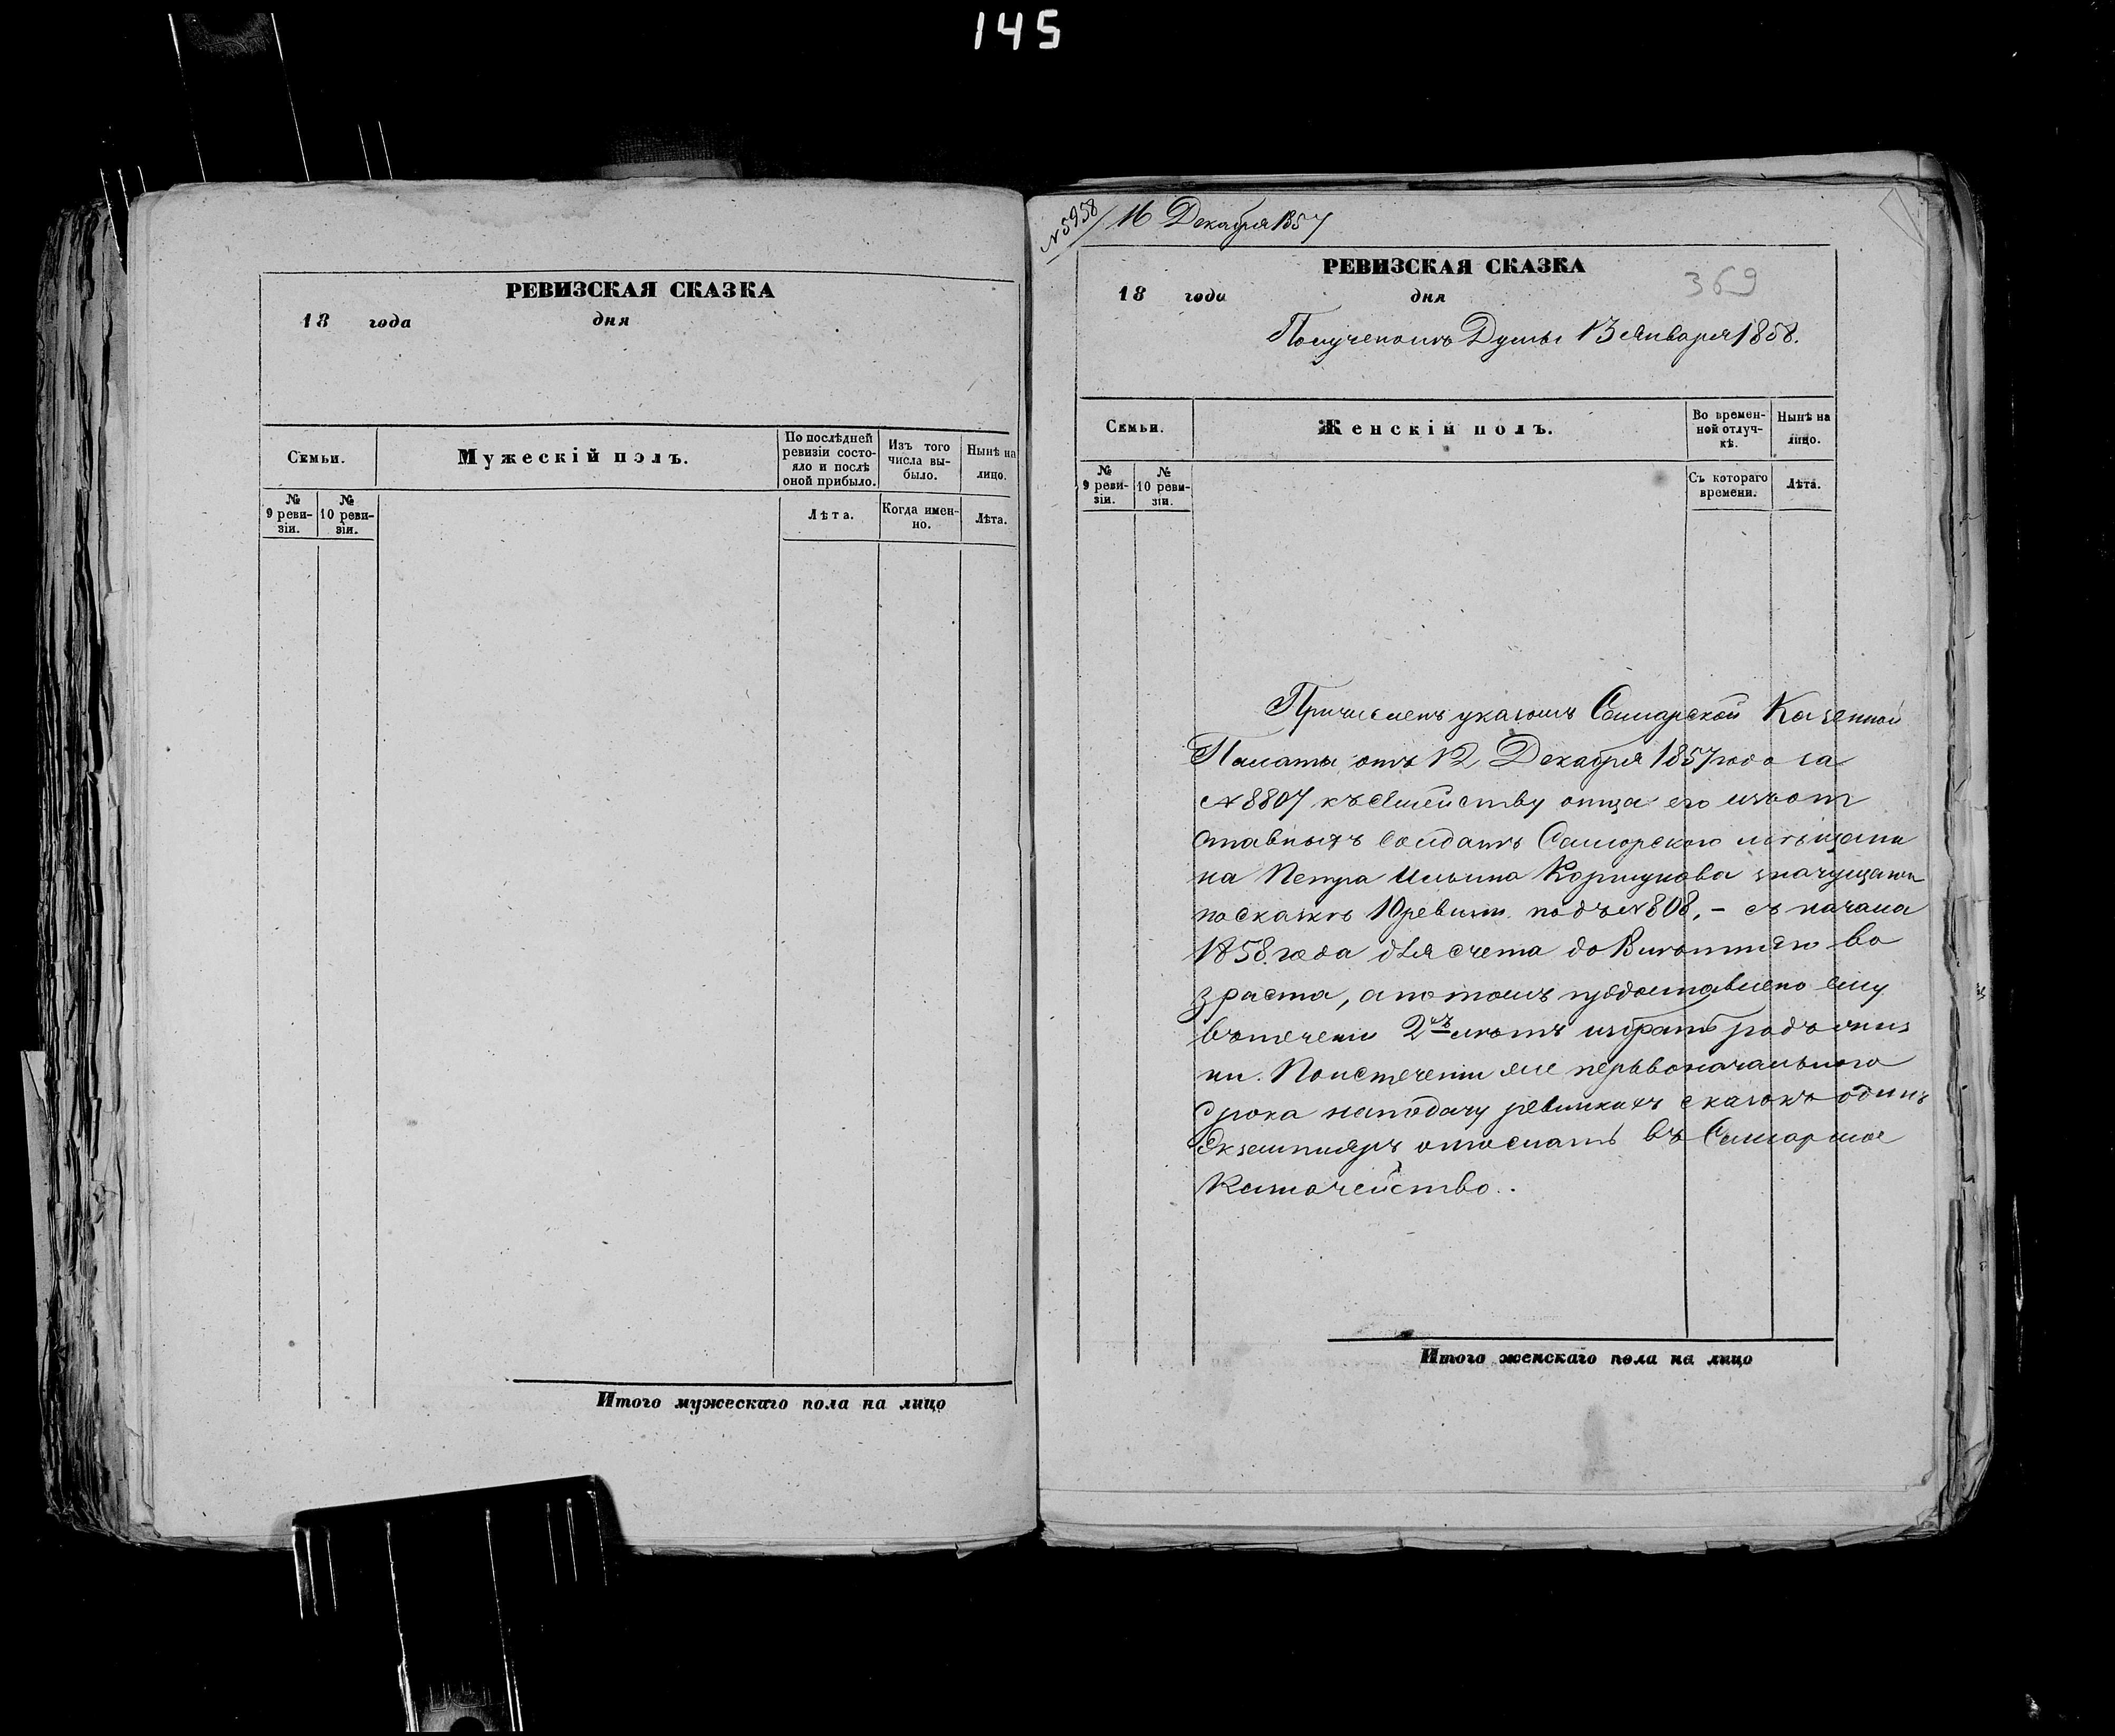 145
РЕВИЗСКАЯ СКАЗКА
18 года дня
Семьи.
Мужескій полъ.
По послѣдней ревизіи состояло и послѣ оной прибыло.
Изъ того числа выбыло.
Нынѣ на лицо.
№ 9 ревизіи.
№ 10 ревизіи.
Лѣта.
Когда именно.
Лѣта.
Итого мужескаго пола на лицо
№ 5958 / 16 Декабря 1857
РЕВИЗСКАЯ СКАЗКА
369
18 года дня
Получено изъ Думы 13 Января 1858.
Семьи.
Женскій полъ.
Во временной отлучкѣ.
Нынѣ на лицо.
№ 9 ревизіи.
№ 10 ревизіи.
Съ котораго времени.
Лѣта.
Причисленъ указомъ Самарской Казенной
Палаты отъ 12 Декабря 1857 года за
№ 8807 къ семейству отца его изъ от
ставныхъ солдатъ Самарскаго мѣщани
на Петра Ильина Коршунова значущагося
по сказкѣ 10 ревизіи подъ № 808, - съ начала
1858. года для счета до 
зраста, а потомъ предоставлено ему
въ теченіи 2хъ лѣтъ избрать родъ жиз
ни. По истеченіи же первоначальнаго
срока на подачу ревизкихъ сказокъ одинъ
Екземпляръ отослать въ Самарское
Казначейство.
Итого женскаго пола на лицо